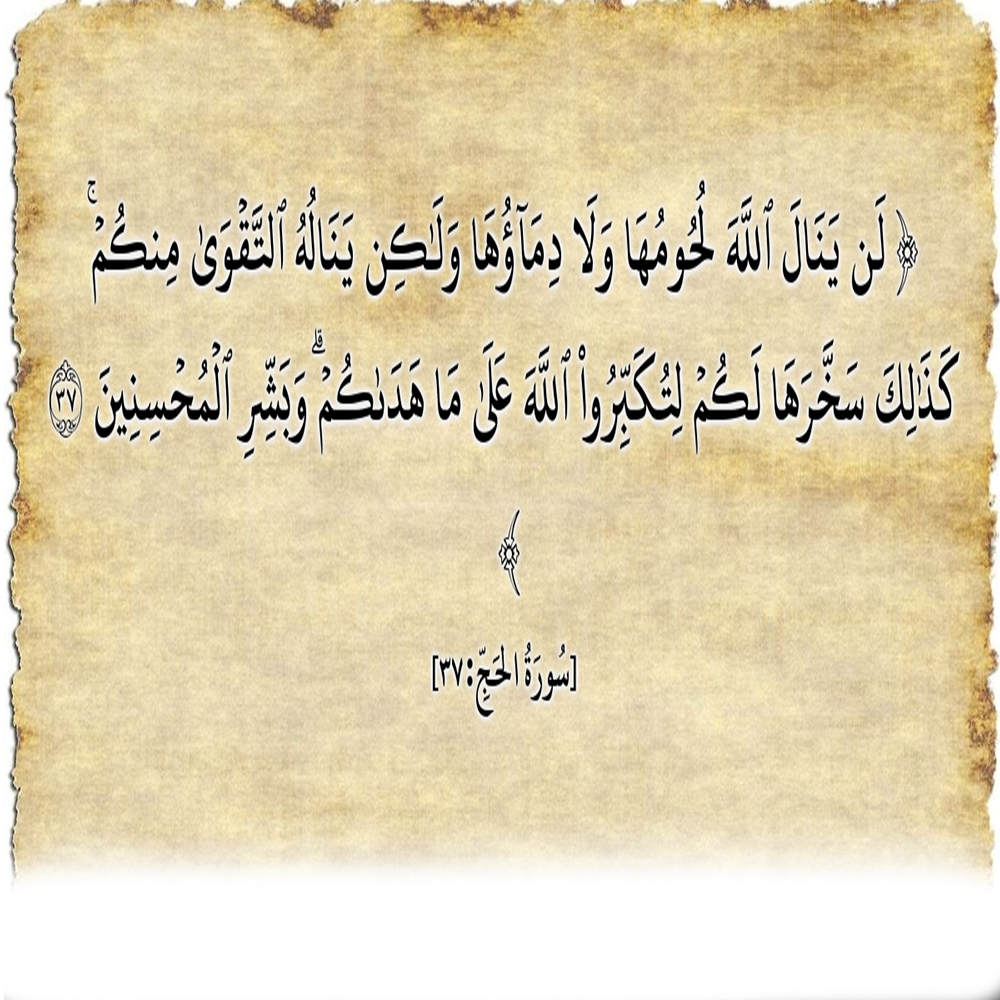 ﴿ لَن يَنَالَ ٱللَّهَ لُحُومُهَا وَلَا دِمَآؤُهَا وَلَـٰكِن يَنَالُهُ ٱلتَّقْوَىٰ مِنكُمْۚ
كَذَٰلِكَ سَخَّرَهَا لَكُمْ لِتُكَبِّرُوا۟ ٱللَّهَ عَلَىٰ مَا هَدَىٰكُمْۗ وَبَشِّرِ ٱلْمُحْسِنِينَ ٣٧
﴾
[سُورَةُ الحَجِّ: ٣٧]